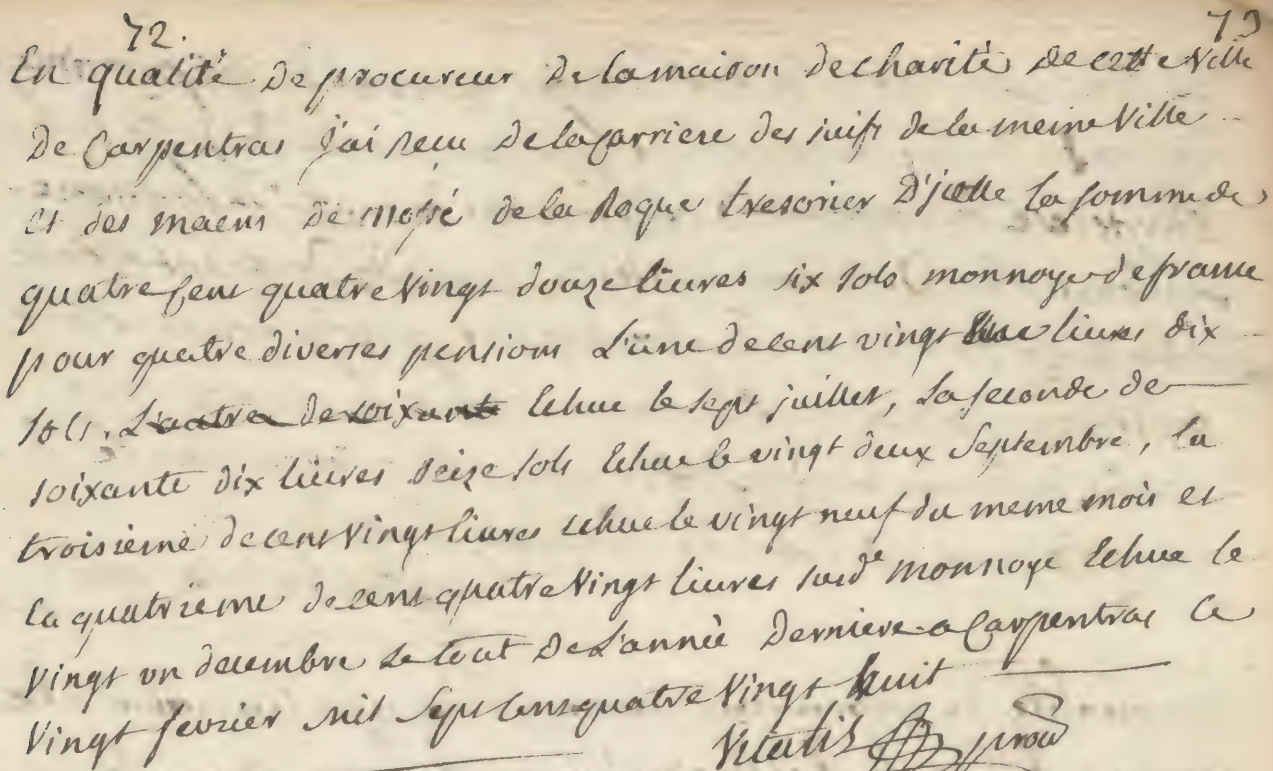 72.
73
En qualité de procureur de la maison de charité de cette Ville
De Carpentras j'ai recu de la carriere des juifs de la meme Ville
et des maens de mossé de la Roque tresorier d'jcelle la somme de
quatre cent quatre Vingt douze liures six sols monnoye de france
pour quatre diverses pensions L'une de cent vingt une liures dix
sols. L'autre de soixante Echue le sept juillet, La seconde de
soixante dix liures seize sols Echue le vingt deux Septembre, la
troisieme de cent Vingt liures echue le vingt neuf du meme mois et
la quatrieme de cent quatre Vingt liures susde monnoye Echue le
Vingt un decembre le tout de L'année Derniere a Carpentras Ce
Vingt fevrier mil Sept cens quatre Vingt huit
Vitalis procr